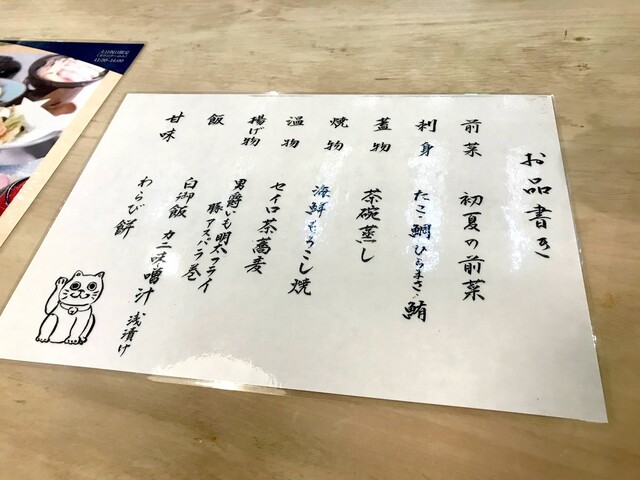 お品書き
前菜 初夏の前菜
刺身 たこ・鯛・ひらまさ・鮪
蓋物 茶碗蒸し
焼物 海鮮もろこし焼
温物 セイロ茶蕎麦
揚げ物 男爵いも明太フライ
豚アスパラ巻
飯 白御飯 カニ味噌汁 浅漬け
甘味 わらび餅
土日祝日限定
11:30~14:00